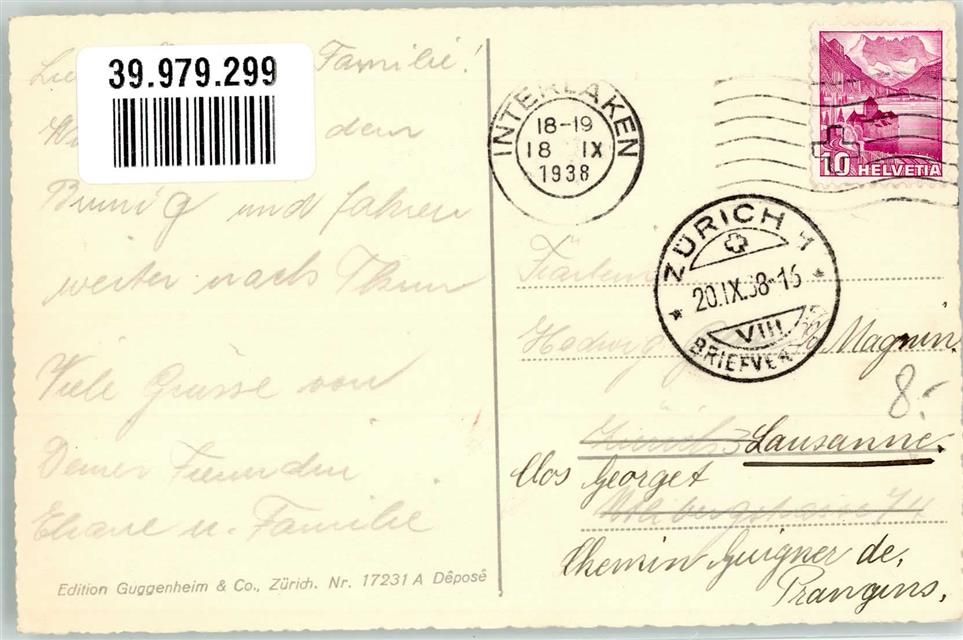 39.979.299
Familie!
dem
Brünig und fahren
weiter nach Thun
Viele Grüsse von
Deiner Freundin
Eliane u. Familie
Edition Guggenheim & Co., Zürich. Nr. 17231 A Déposé
INTERLAKEN
18-19
18 IX
1938
10 HELVETIA
ZÜRICH 1
20.IX.38-16
VIII
Fräulein
Hedwig Magnin.
8.-
Zürich 3 Lausanne.
Clos Georget
Chemin Guigner de,
Prangins,